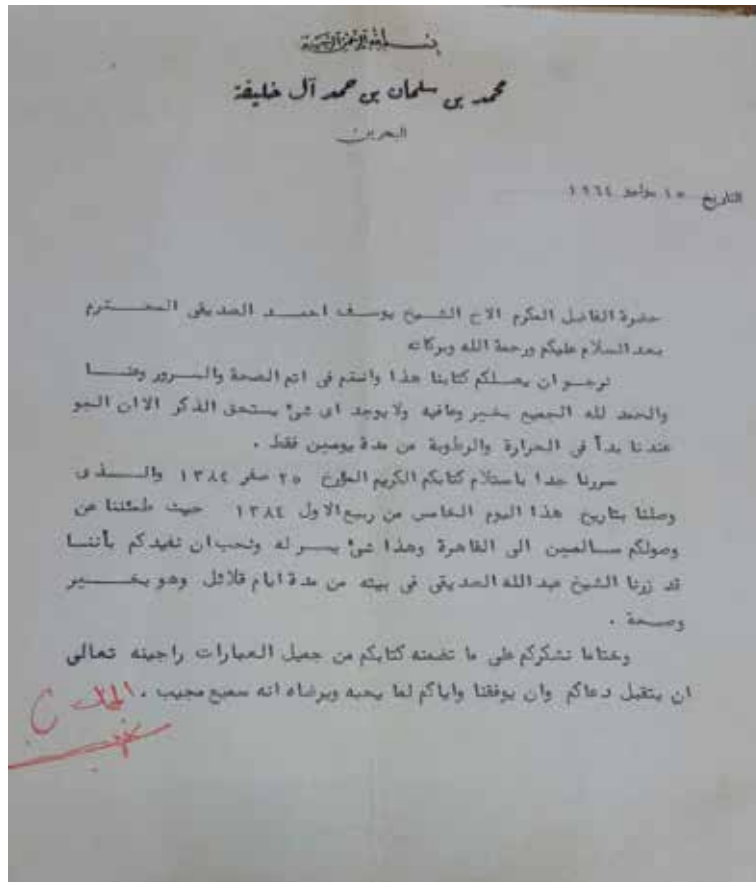 بسم الله الرحمن الرحيم
محمد بن سلمان بن حمد آل خليفة
البحرين
التاريخ ١٥ يوليو ١٩٦٤
حضرة الفاضل المكرم الاخ الشيخ يوسف احمد الصديقي المحترم
بعد السلام عليكم ورحمة الله وبركاته
نرجو ان يصلكم كتابنا هذا وانتم في اتم الصحة والسرور وهنا
والحمد لله الجميع بخير وعافيه ولا يوجد اى شئ يستحق الذكر الا ان الجو
عندنا بدأ في الحرارة والرطوبة من مدة يومين فقط .
سررنا جدا باستلام كتابكم الكريم المؤرخ ٢٥ صفر ١٣٨٤ والذى
وصلنا بتاريخ هذا اليوم الخامس من ربيع الاول ١٣٨٤ حيث طمئننا عن
وصولكم سالمين الى القاهرة وهذا شئ يسر له ونحب ان نفيدكم بأننا
قد زرنا الشيخ عبد الله الصديقي في بيته من مدة ايام قلائل وهو بخير
وصحة .
وختاما نشكركم على ما تضمنه كتابكم من جميل العبارات راجينه تعالى
ان يتقبل دعاكم وان يوفقنا واياكم لما يحبه ويرضاه انه سميع مجيب .